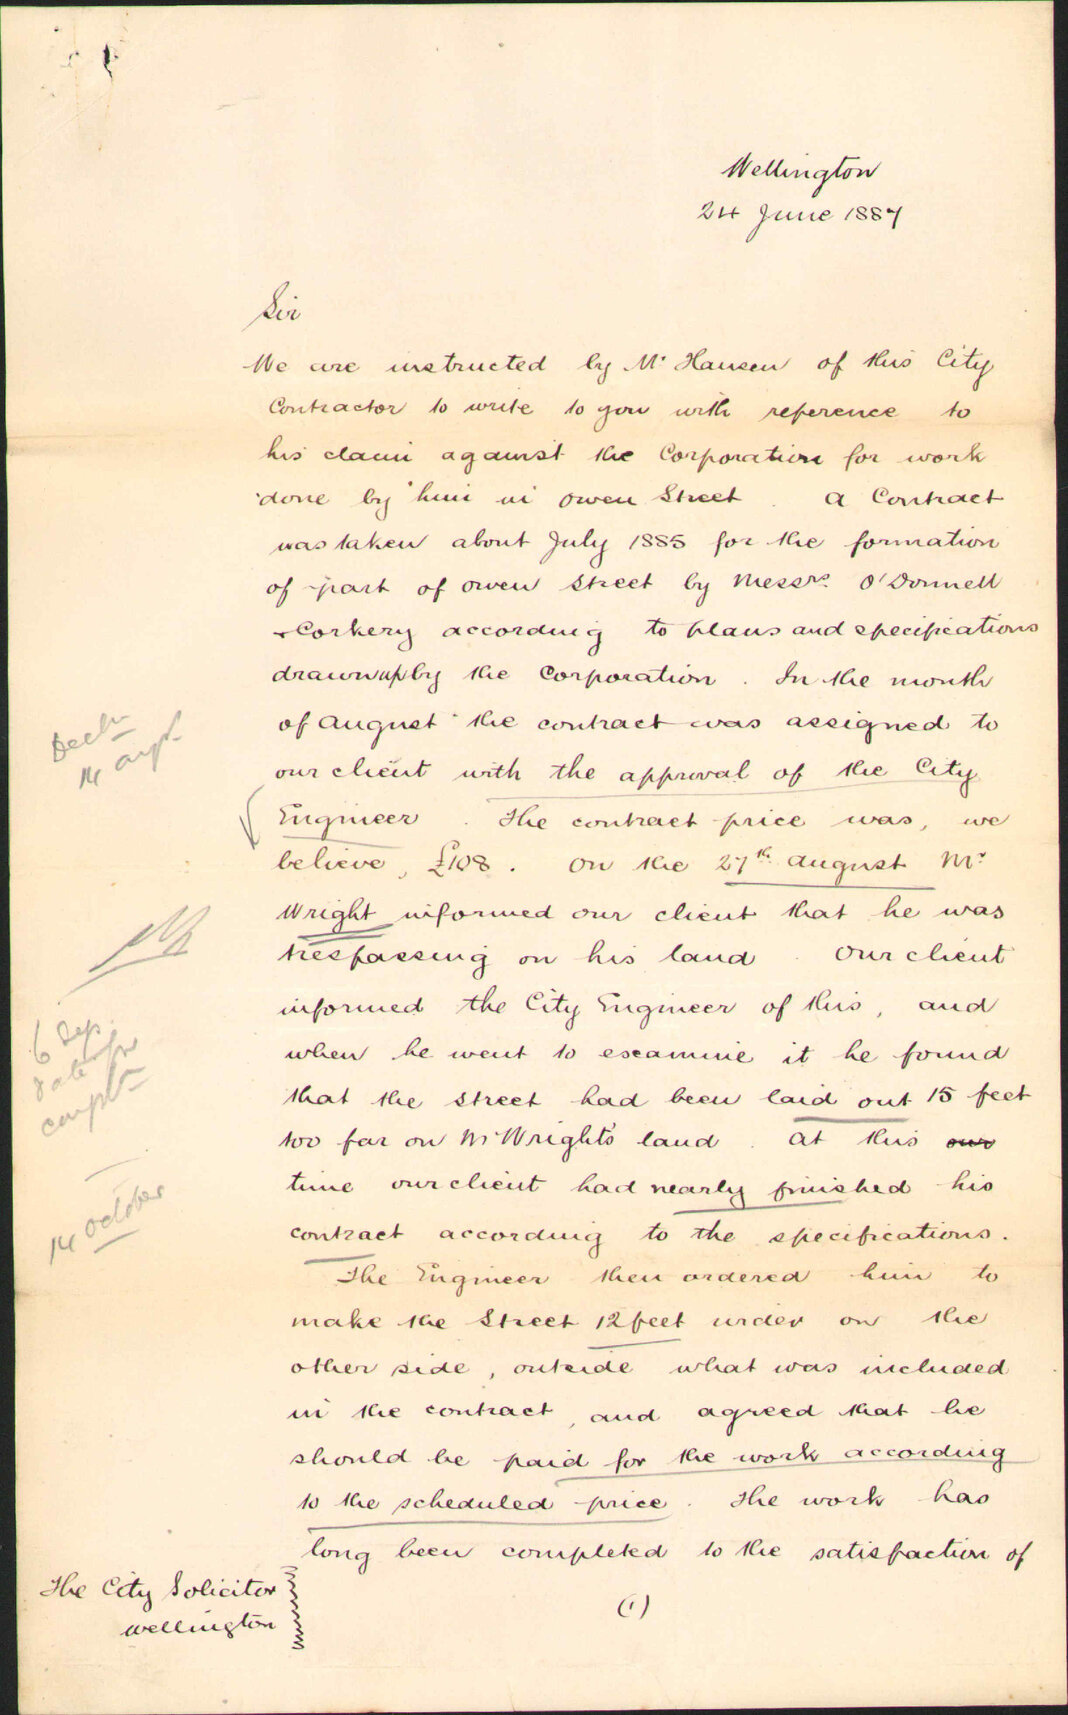 Wellington
24 June 1887
Sir
We are instructed by Mr Hansen of this City
Contractor to write to you with reference to
his claim against the Corporation for work
done by him in Owen Street. A Contract
was taken about July 1885 for the formation
of part of Owen Street by Messrs. O'Donnell
+ Corkery according to plans and specifications
drawn up by the Corporation. In the month
of August the contract was assigned to
our client with the approval of the City
Engineer. The contract price was, we
believe, £108. On the 27th August Mr
Wright informed our client that he was
trespassing on his land. Our client
informed the City Engineer of this, and
when he went to examine it he found
that the street had been laid out 15 feet
too far on Mr Wright's land. At this our
time our client had nearly finished his
contract according to the specifications.
The Engineer then ordered him to
make the Street 12 feet wider on the
other side, outside what was included
in the contract, and agreed that he
should be paid for the work according
to the scheduled price. The work has
long been completed to the satisfaction of
The City Solicitor
Wellington
(1)
14 Augt
6 Sep.
date for
14 October